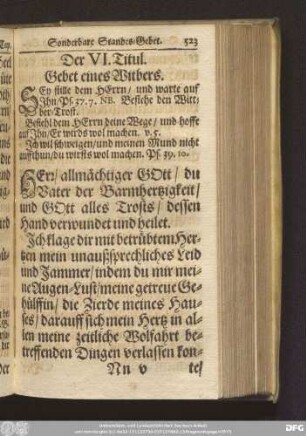 Sonderbare Standes-Gebet. 523
Der VI. Titul.
Gebet eines Witbers.
SEy stille dem HErrn / und warte auf
Ihn Ps. 37. 7. NB. Besiehe den Witt-
ber-Trost.
Befehl dem HErrn deine Wege / und hoffe
auf Ihn / Er wirds wol machen. v. 5.
Ich wil schweigen / und meinen Mund nicht
auffthun / du wirsts wol machen. Ps. 39. 10.
HErr / allmächtiger GOtt / du
Vater der Barmhertzigkeit /
und GOtt alles Trosts / dessen
Hand verwundet und heilet.
Ich klage dir mit betrübtem Her-
tzen mein unaußsprechliches Leid
und Jammer / indem du mir mei-
ne Augen-Lust / meine getreue Ge-
hülffin / die Zierde meines Hau-
ses / darauff sich mein Hertz in al-
len meine zeitliche Wolfahrt be-
treffenden Dingen verlassen kon-
Nn v te /